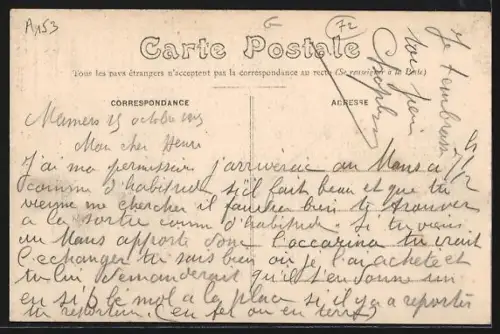 A,153
G
72
Carte Postale
Tous les pays étrangers n'acceptent pas la correspondance au recto (Se renseigner à la Poste)
CORRESPONDANCE
ADRESSE
Mamers 15 octobre
Mon cher Henri
J'ai ma permission j'arriverai au Mans a
comme d'habitude s'il fait beau et que tu
vienne me chercher il faudra bien te trouver
a la sortie comme d'habitude. Si tu viens
au Mans apporte donc l'occarina tu irait
l'echanger tu sais bien ou je l'ai achete et
tu lui demanderait qu'il t'en donne un
en si b bémol a la place si il y a a reporter
tu reporteras (en fer ou en terre)
Je t'embrasse
ton